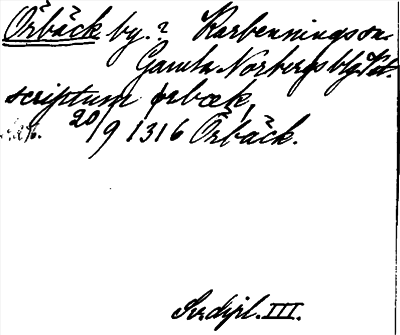 Örbäck by.? Karbenningssn.
Gamla Norbergs blg Vst.
scriptum ørbæk,
20/9 1316 Örbäck.
Sv dipl. III.